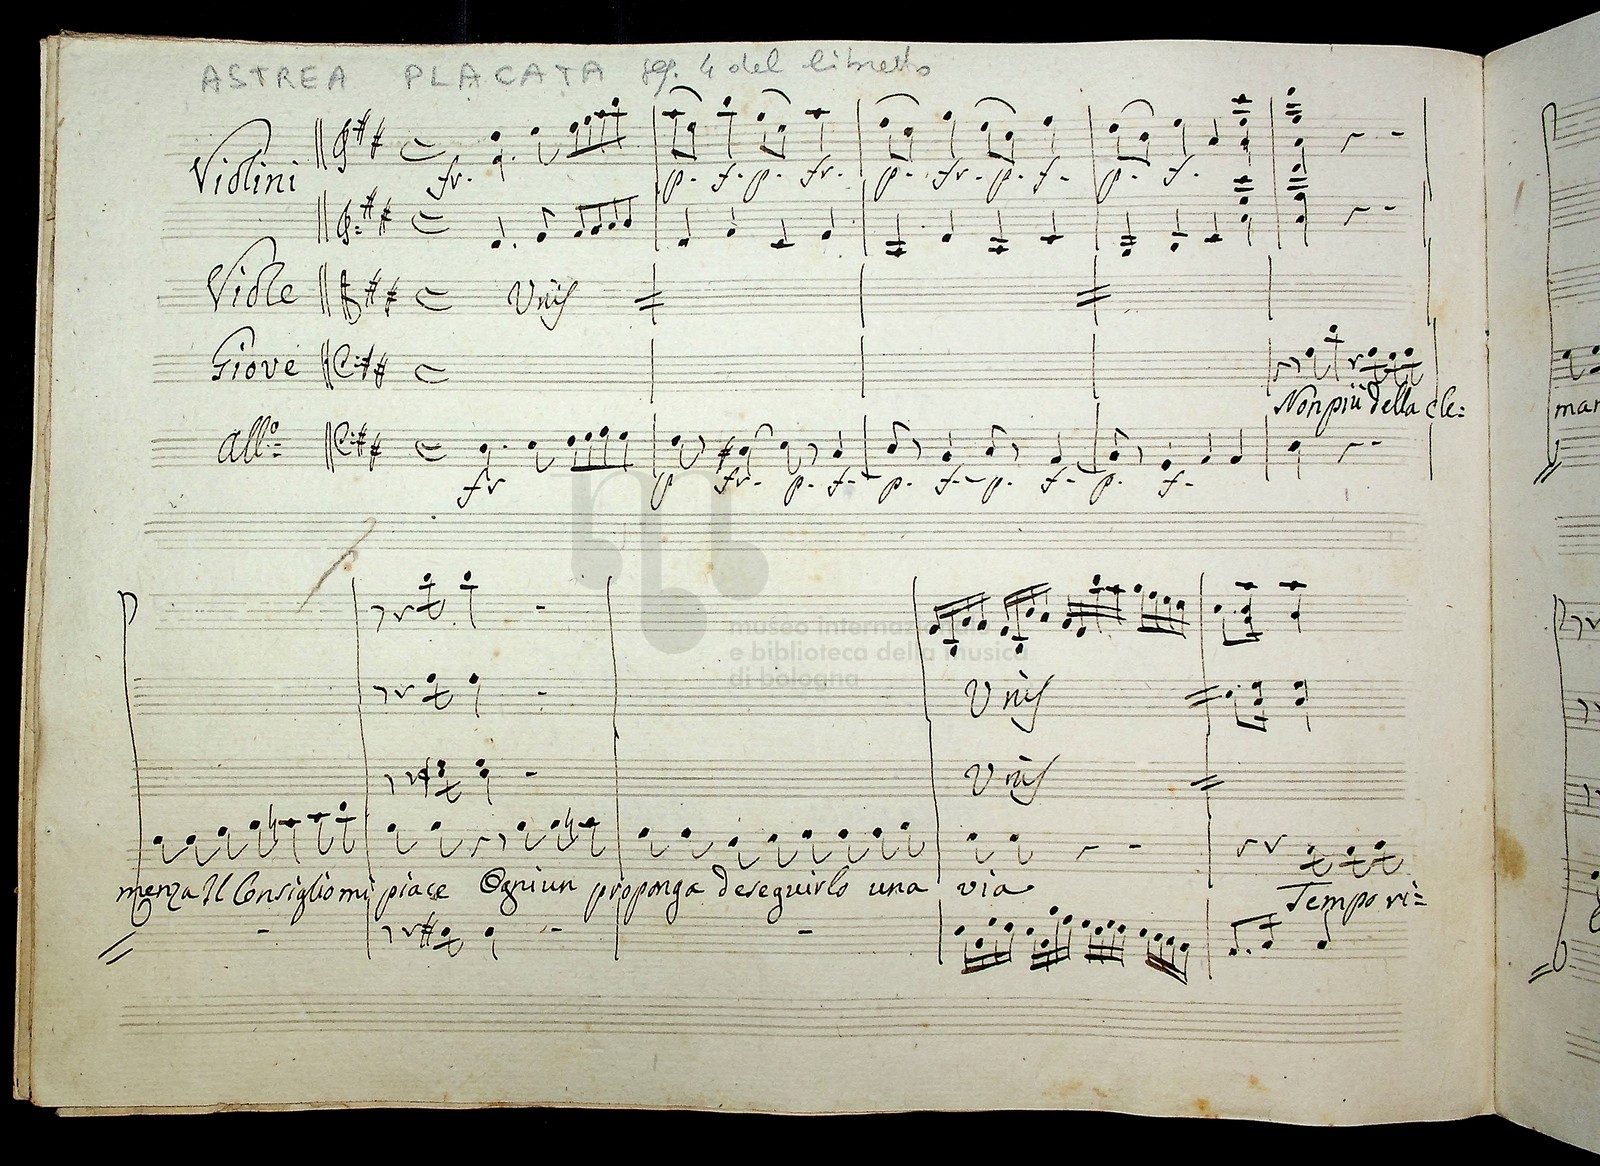 ASTREA PLACATA pag. 4 del libretto
Violini
fr. p. f. p. fr. p. fr. p. f. p. f.
Viole Unis
Giove
Non più della cle=
All.o
fr p fr. p. f. p. f. p. f. p. f.
museo internazionale
e biblioteca della musica
di bologna
Unis
Unis
menza Il Consiglio mi piace Ogniun proponga deseguirlo una via Tempo ri=
mar